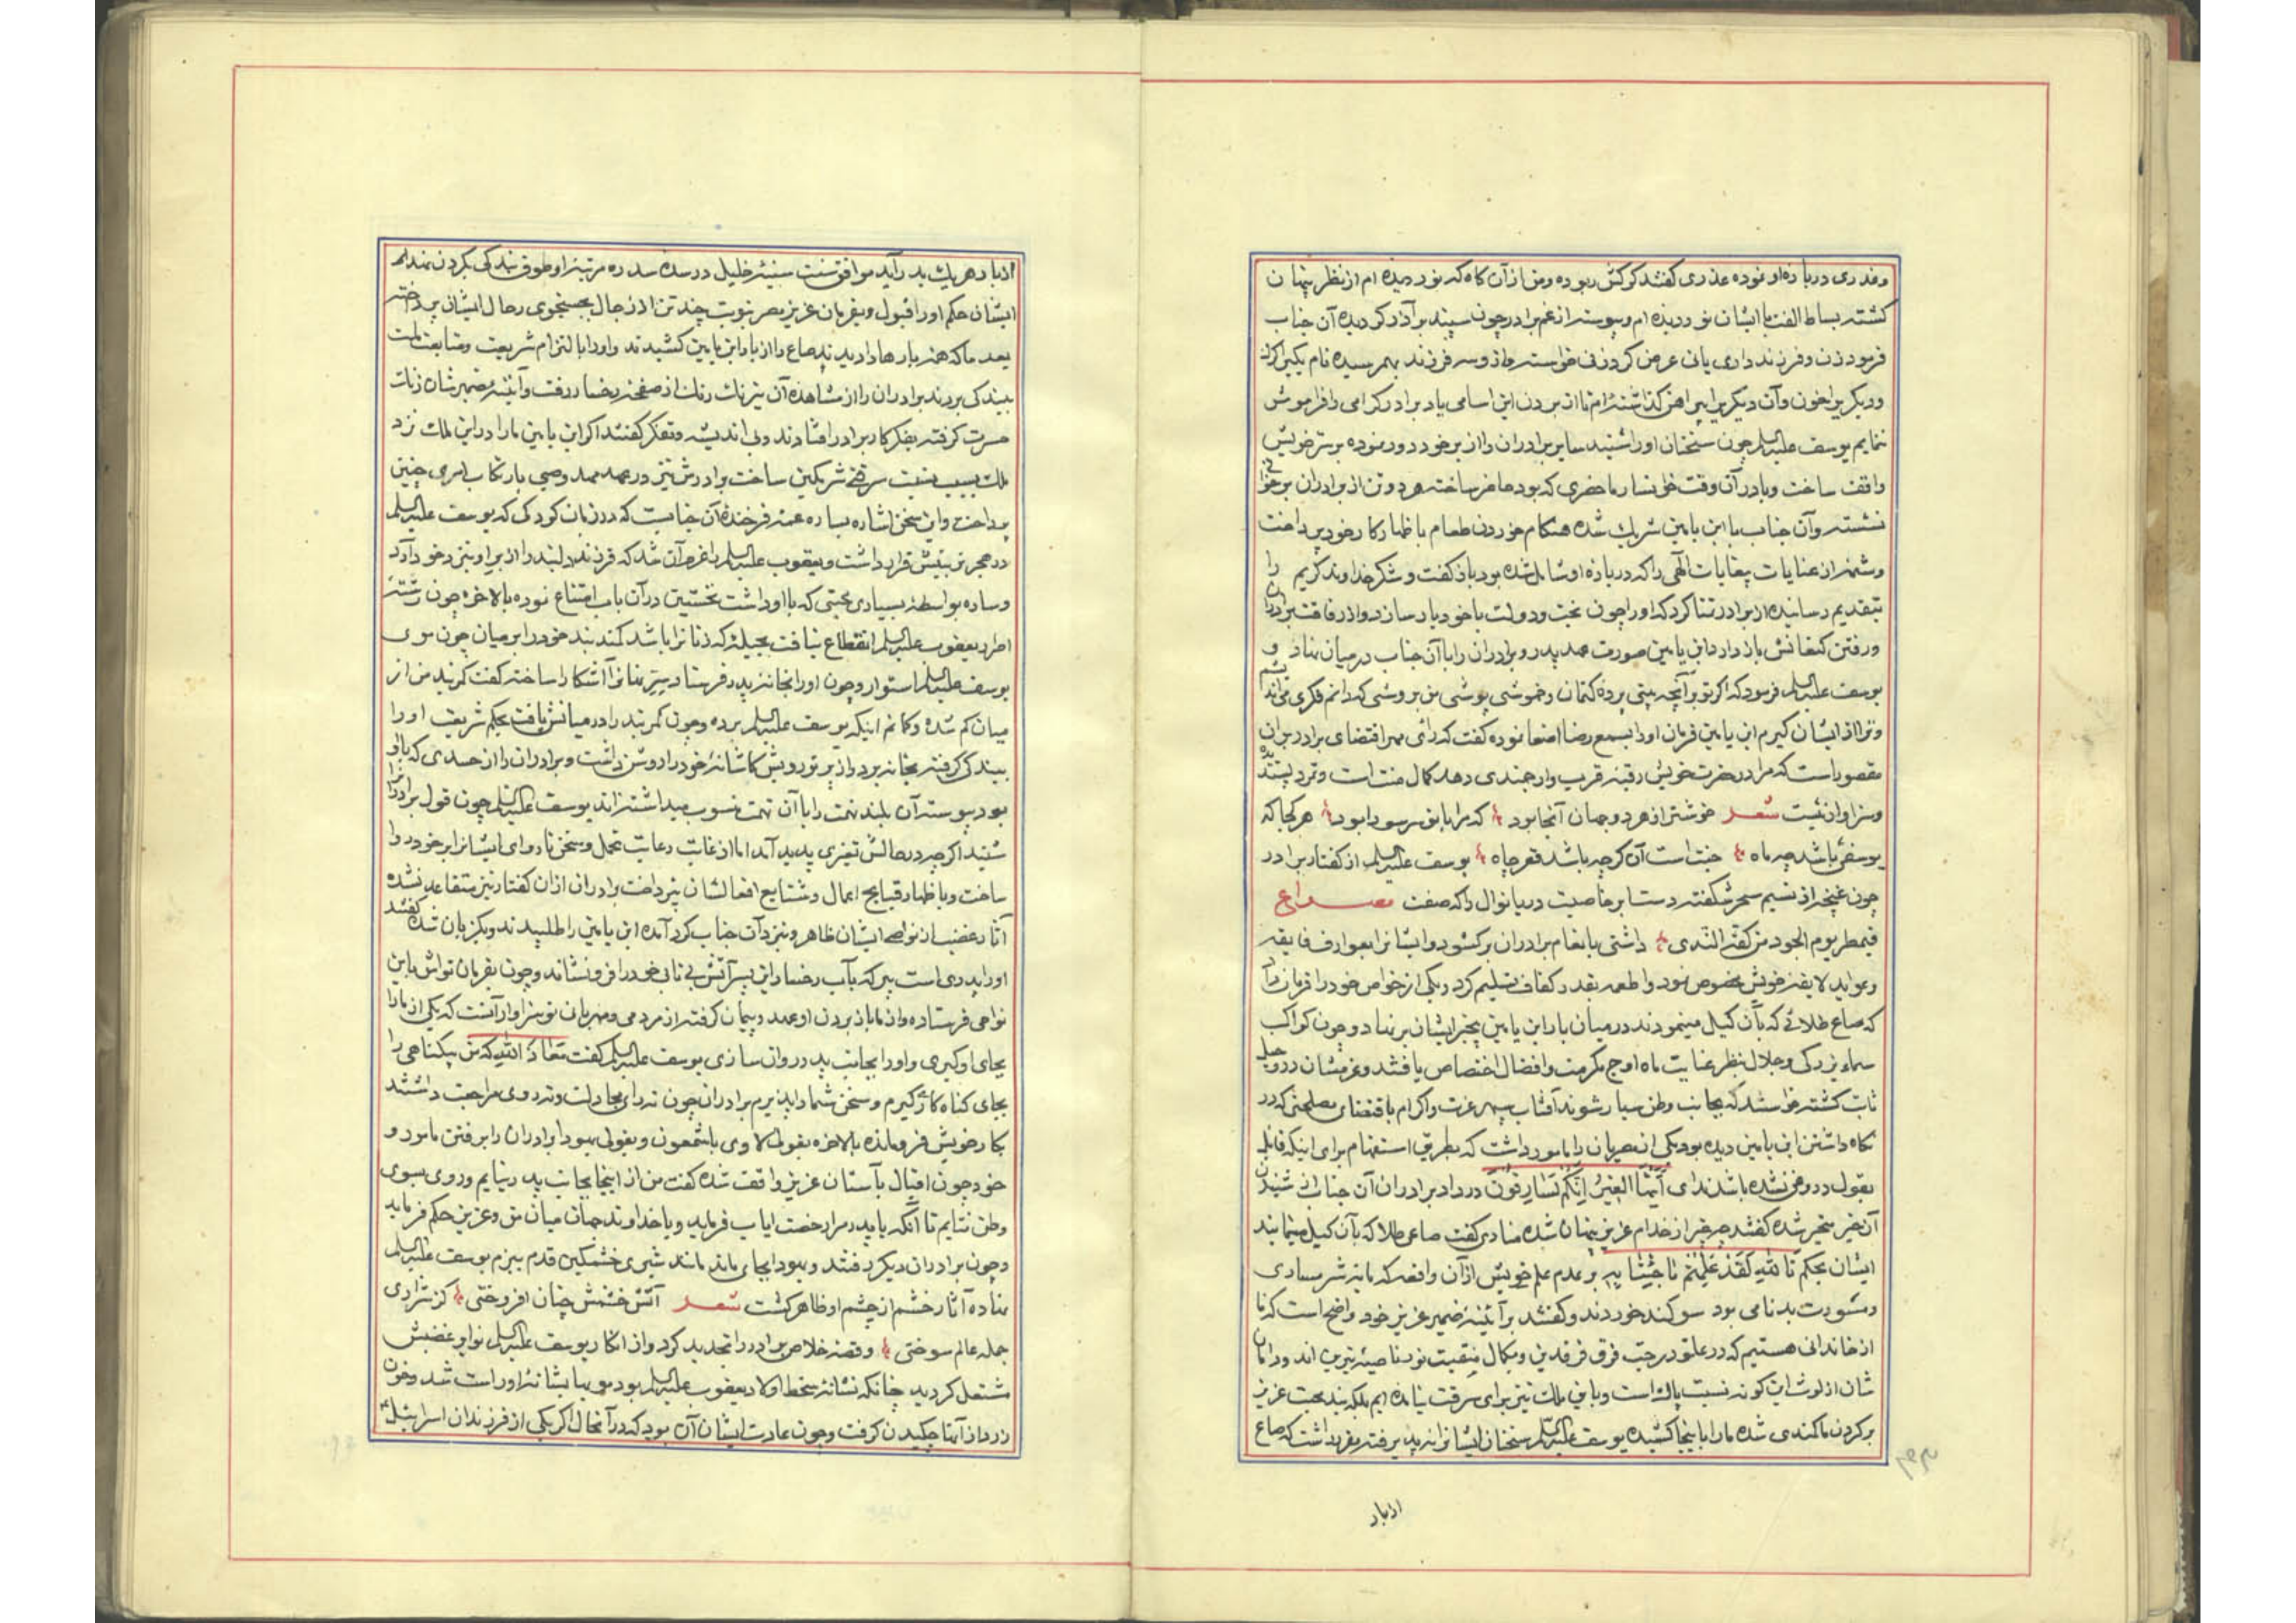 وغدری درباره او نموده عذری گفتند که گرگش ربوده ومن از آن گاه که نور دیده ام از نظر پنهان
گشته بساط الفت با ایشان نوردیده ام وپیوسته از غم برادر چون سپند بر آذر گردیده آن جناب
فرمود زن وفرزند داری یا نی عرض کرد زنی خواسته وازو سه فرزند بهم رسیده نام یکی را گرک
ودیگر یرا خون وآن دیگر یرا پیراهن گذاشته ام تا از بردن این اسامی یاد برادر گرامی را فراموش
ننمایم یوسف علیه السلم چون سخنان او را شنید سایر برادران را از بر خود دور نموده بر سر خویش
واقف ساخت وبا در آن وقت خوانسار ما حضری که بود حاضر ساخته هر دو تن از برادران بر خوانی
نشسته وآن جناب با ابن یامین شریک شده هنگام خوردن طعام باظهار کار خود پرداخت
وشمهٔ از عنایات بیغایات الهی را که درباره او شامل شده بود باز گفت وشکر خداوند کریم را
بتقدیم رسانیده از برادر تمنا کرد که او را چون بخت ودولت با خود یار سازد واز رفاقت برادران
ورفتن کنعانش باز دارد ابن یامین صورت عهد پدر وبرادران را با آن جناب در میان نهاد و
یوسف علیه السلم فرمود که اگر تو بر آنچه بینی پرده کتمان وخموشی پوشی من بروشی که دانم فکری می اندیشم
وترا از ایشان گیرم ابن یامین فرمان او را بسمع رضا اصغا نموده گفت که رأی مهر اقتضای برادر بر آن
مقصور است که مرا در حضرت خویش رقبه قرب وارجمندی دهد کمال منت است وتمرد پسندیده
وسزاوار نیست شعر خوشتر از هر دو جهان آنجا بود که مرا با تو سر سودا بود هر کجا که
یوسفی باشد چو ماه جنت است آن گر چه باشد قعر چاه یوسف علیه السلم از گفتار برادر
چون غنچه از نسیم سحر شکفته دست ابر خاصیت دریا نوال را که صفت مصراع
فیمطر یوم الجود من کفه الندی داشتی بانعام برادران بر گشود وایشانرا بعوارف فایقه
وعواید لایقه خویش مخصوص نمود واطعمه بقدر کفاف تسلیم کرد ویکی از خواص خود را فرمان داد
که صاع طلائی که بآن کیل مینمودند در میان بار ابن یامین بیخبر ایشان بر نهاد وچون کواکب
سماء بزرگی وجلال بنظر عنایت ماه اوج مکرمت وافضال اختصاص یافتند وعزمشان در رحیل
ثابت گشته خواستند که بجانب وطن سیار شوند آفتاب سپهر عزت واکرام باقتضای مصلحتی که در
نگاه داشتن ابن یامین دیده بود یکی از مصریان را مامور داشت که بطریق استفهام برای اینکه قایل
بقول دروغی نشده باشد ندای أَیَّتُهَا العِیرُ إِنَّکُمْ لَسَارِقُونَ در داد برادران آن جناب از شنیدن
آن خبر متحیر شده گفتند چه چیز از خدام عزیز پنهان شده منادی گفت صاعی طلا که بآن کیل مینمایند
ایشان بحکم تَاللّٰهِ لَقَدْ عَلِمْتُم مَّا جِئْنَا بر عدم علم خویش از آن واقعه که مایه شرمساری
ومشورت بدنامی بود سوگند خوردند وگفتند بر آئینه ضمیر عزیز خود واضح است که ما
از خاندانی هستیم که در علو درجت فرق فرقدین وبکمال منقبت نور ناصیه نیرین اند ودامان
شان از لوث این گونه نسبت پاک است وباین ملک نیز برای سرقت نیامده ایم بلکه بند محبت عزیز
بر گردن ما کمندی شده ما را باینجا کشیده یوسف علیه السلم سخنان ایشانرا نپذیرفته مقرر داشت که صاع
از بار
از بار هر یک بدر آید موافق سنت سنیه خلیل در سده سدره مرتبه او طوق بندگی بگردن نهد
ایشان حکم او را قبول وبفرمان عزیز مصر بنوبت چند تن از رجال بجستجوی رحال ایشان پرداختند
بعد ما که همه بارها را دیدند صاع را از بار ابن یامین کشیدند واو را بالتزام شریعت ومتابعت ملت
ببندگی بردند برادران را از مشاهده آن نیرنگ رنگ از صفحه رخسار رفت وآئینه ضمیرشان زنگ
حسرت گرفته بفکر کار برادر افتادند وبی اندیشه وتفکر گفتند اگر ابن یامین ما را در این ملک نزد
ملک بسبب نسبت سرقت شرمگین ساخت برادرش نیز در عهد مهد وصبی بارتکاب امری چنین
پرداخت واین سخن اشاره بساره عمه فرخنده آن جنابست که در زمان کودکی که یوسف علیه السلم
در حجر تربیتش قرار داشت ویعقوب علیه السلم را عزم آن شد که فرزند دلبند را از بر او بنزد خود آورد
وساره بواسطه بسیاری محبتی که با او داشت نخستین در آن باب امتناع نموده بالاخره چون رشته
اصرار یعقوب علیه السلم انقطاع نیافت بحیلهٔ که زنانرا باشد کمند بند خود را بر میان چون موی
یوسف علیه السلم استوار وچون او را بخانه پدر فرستاد سر پنهانرا آشکارا ساخته گفت کمربند من از
میان گم شده وگمانم اینکه یوسف علیه السلم برده وچون کمربند را در میانش یافت بحکم شریعت او را
ببندگی گرفته بخانه برد واز پرتو رویش کاشانه خود را روشن داشت وبرادران را از حسدی که با او
بود پیوسته آن بلند همت را بآن تهمت منسوب میداشته اند یوسف علیه السلم چون قول برادرانرا
شنید اگر چه در حالش تغیری پدید آمد اما از غایت رعایت تحمل وسخن ناروای ایشانرا بر خود روا
ساخت وباظهار قبایح اعمال وشنایع افعالشان نپرداخت برادران از آن گفتار نیز متقاعد نشده
آثار غضب از نواصی ایشان ظاهر وبنزد آن جناب گرد آمده ابن یامین را طلبیدند ویکزبان شده گفتند
او را پدری است پیر که بآب رخسار این پسر آتش بی تابی خود را فرو نشاند وچون بفرمان تواش باین
نواحی فرستاده واز ما باز بردن او عهد وپیمان گرفته از مردمی ومهربانی تو سزاوار آنست که یکی از ما را
بجای او گیری واو را بجانب پدر روان سازی یوسف علیه السلم گفت مَعَاذَ اللّٰهِ که من بیگناهی را
بجای گناه کاری گیرم وسخن شما را پذیرم برادران چون نه رای مجادلت ونه روی مراجعت داشتند
بکار خویش فرومانده بالاخره بقولی لاوی یا شمعون وبقولی یهودا برادران را برفتن مامور و
خود چون اقبال بآستان عزیز واقف شده گفت من از اینجا بجانب پدر نیایم وروی بسوی
وطن ننمایم تا آنکه یا پدر مرا رخصت ایاب فرماید ویا خداوند جهان میان من وعزیز حکم فرماید
وچون برادران دیگر رفتند ویهودا بجای ماند مانند شیری خشمگین قدم ببزم یوسف علیه السلم
نهاده آثار خشم از چشم او ظاهر گشت شعر آتش خشمش چنان افروختی کز شراری
جمله عالم سوختی وقصه خلاص برادر را تجدید کرد واز انکار یوسف علیه السلم نوایر غضبش
مشتعل گردید چنانکه نشانه سخط اولاد یعقوب علیه السلم بود مویها بشانهٔ او راست شد وخون
زرد از آنها چکیدن گرفت وچون عادت ایشان آن بود که در آنحال اگر یکی از فرزندان اسرائیل